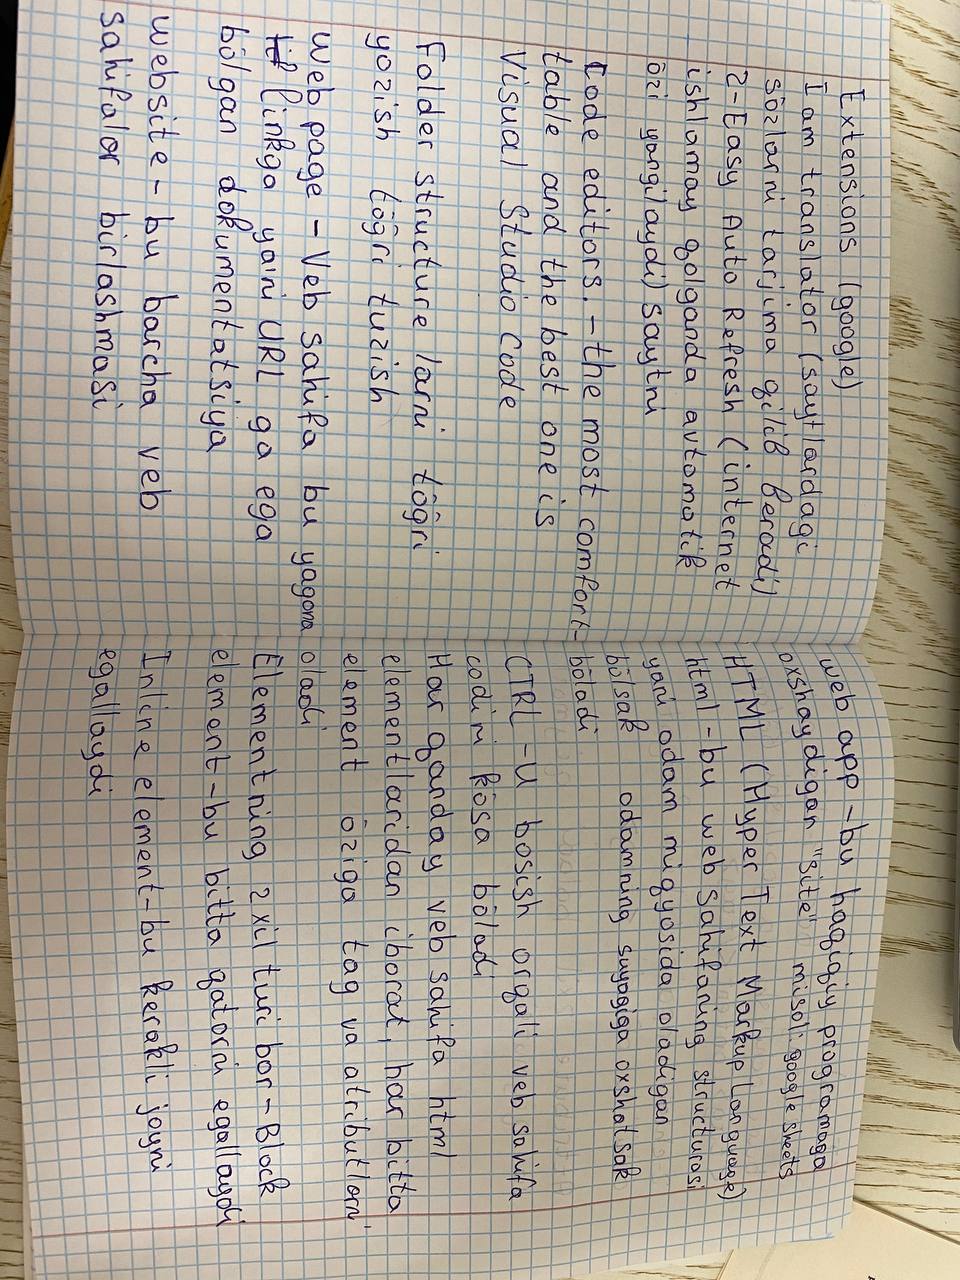 Extensions (google)
I am translator (saytlardagi
sōzlarni tarjima qilib beradi)
2-Easy Auto Refresh (internet
ishlamay qolganda avtomatik
ōzi yangilaydi) saytni
Code editors. - the most comfort-
table and the best one is
Visual Studio Code
Folder structure larni tōg̃ri
yozish tōg̃ri tuzish
Web page - Veb sahifa bu yagona
linkga ya'ni URL ga ega
bōlgan dokumentatsiya
Website - bu barcha veb
sahifalar birlashmasi
Web app - bu haqiqiy programaga
oxshaydigan "Site" misoli: google sheets
HTML (Hyper Text Markup Language)
html - bu web sahifaning structurasi
yani odam miqyosida oladigan
bōlsak odamning suyagiga oxshatsak
bōladi
CTRL-U bosish orqali veb sahifa
codini kōsa bōladi
Har qanday veb sahifa html
elementlaridan iborat, har bitta
element ōziga tag va atributlarni
oladi
Elementning 2 xil turi bor - Block
element - bu bitta qatorni egallaydi
Inline element - bu kerakli joyni
egallaydi